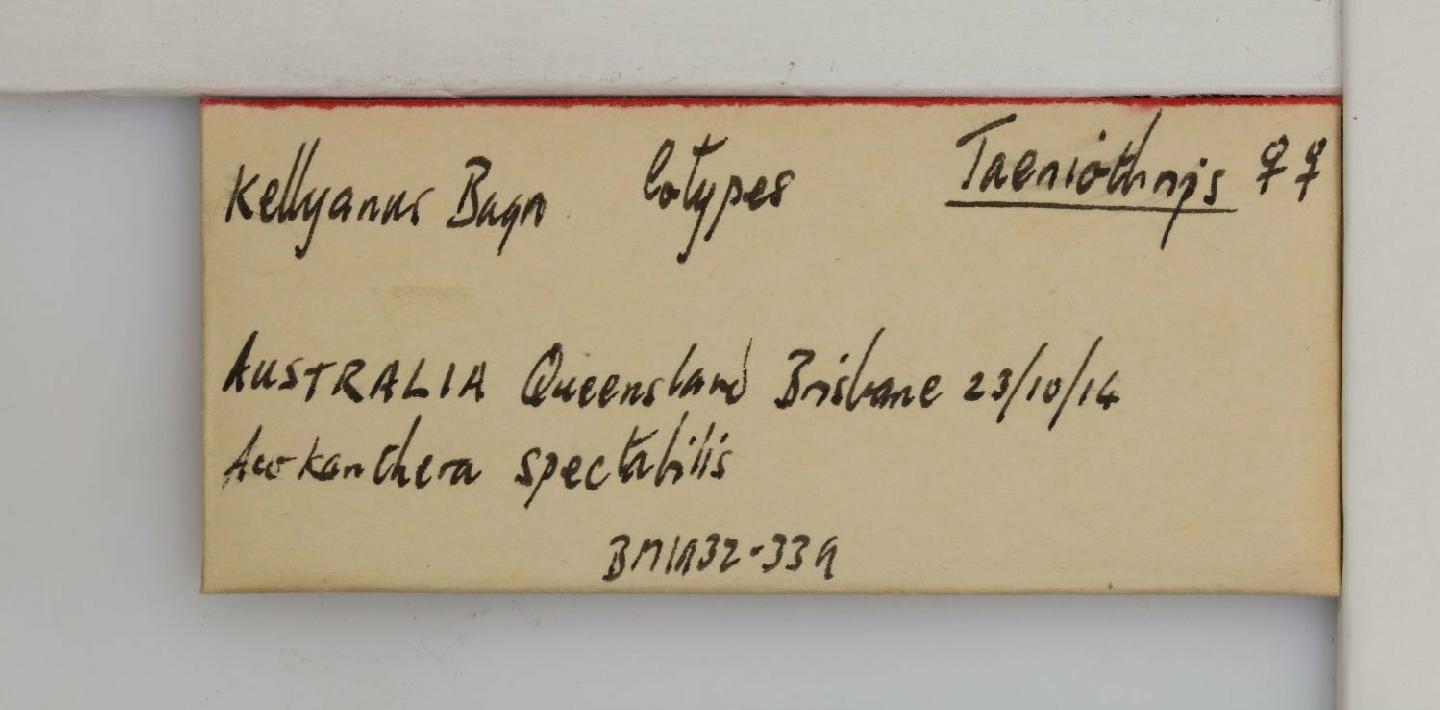 Kellyanus Bagn Cotypes Taeniothrips ♀♀
AUSTRALIA Queensland Brisbane 23/10/14
Acokanthera spectabilis
BM1932-339